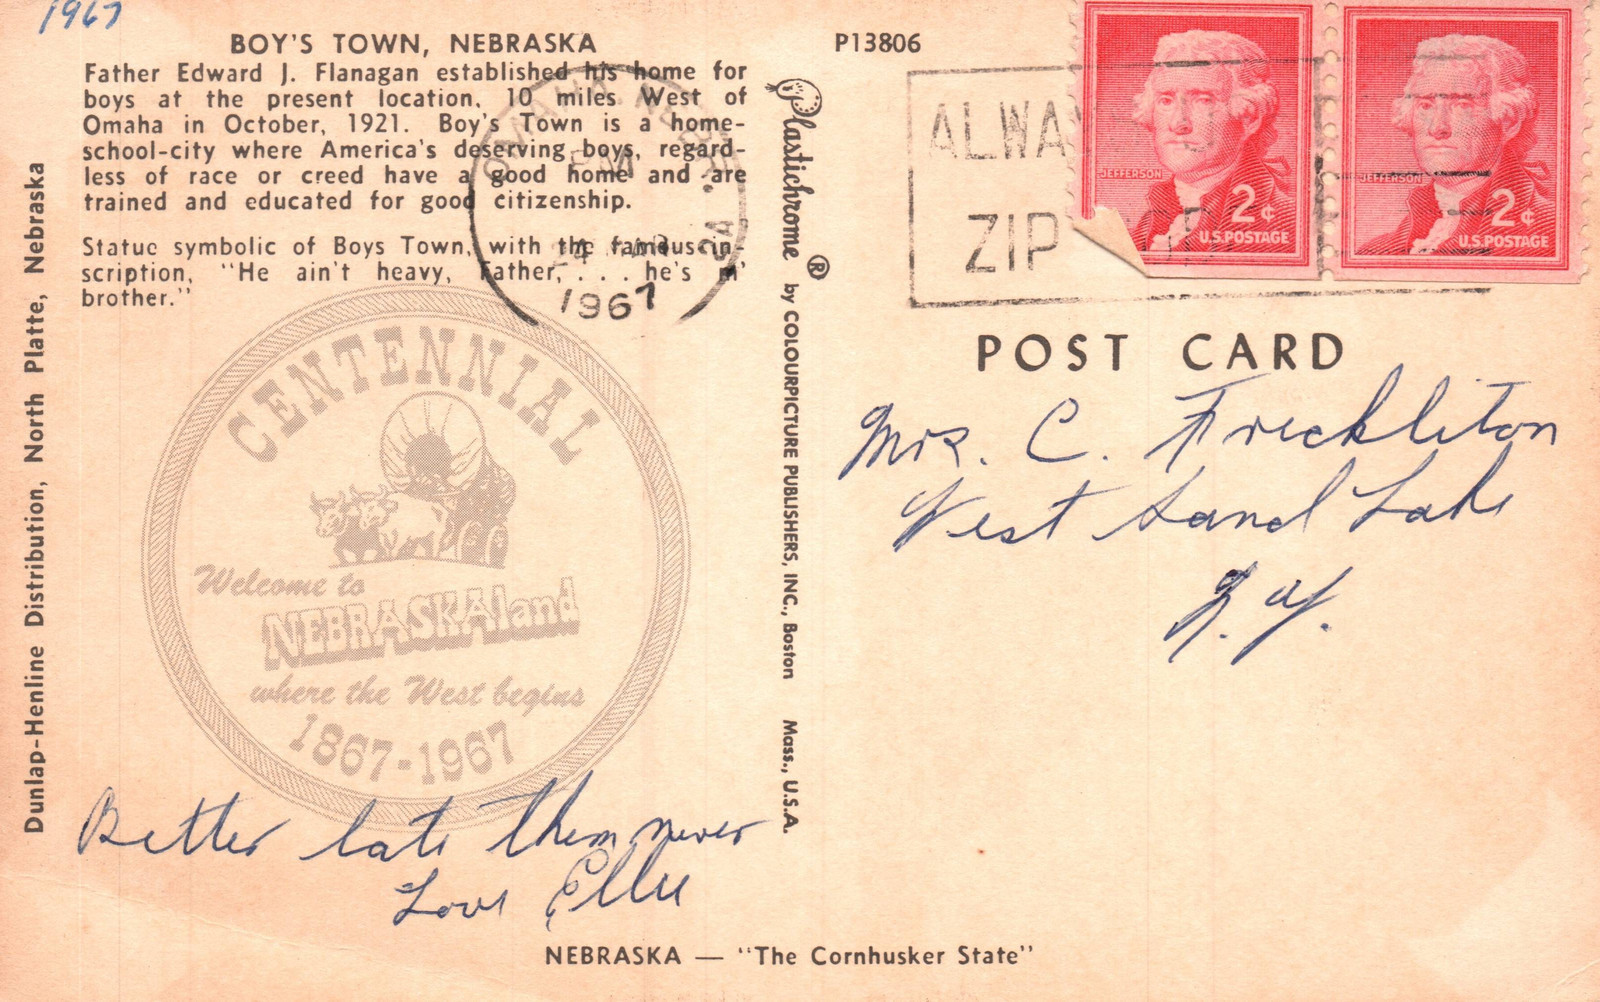 1967
BOY'S TOWN, NEBRASKA
Father Edward J. Flanagan established his home for
boys at the present location, 10 miles West of
Omaha in October, 1921. Boy's Town is a home-
school-city where America's deserving boys, regard-
less of race or creed have a good home and are
trained and educated for good citizenship.
Statue symbolic of Boys Town, with the famous in-
scription, "He ain't heavy, Father, . . . he's m'
brother."
OMAHA, NEBR.
PM
24
1967
CENTENNIAL
Welcome to
NEBRASKAland
where the West begins
1867-1967
Better late then never
Love Ellie
Dunlap-Henline Distribution, North Platte, Nebraska
Plastichrome ® by COLOURPICTURE PUBLISHERS, INC., Boston Mass., U.S.A.
P13806
ALWAYS USE
ZIP CODE
JEFFERSON
2¢
U.S. POSTAGE
JEFFERSON
2¢
U.S. POSTAGE
POST CARD
Mrs. C. Freckliton
West Sand Lake
N.Y.
NEBRASKA — "The Cornhusker State"